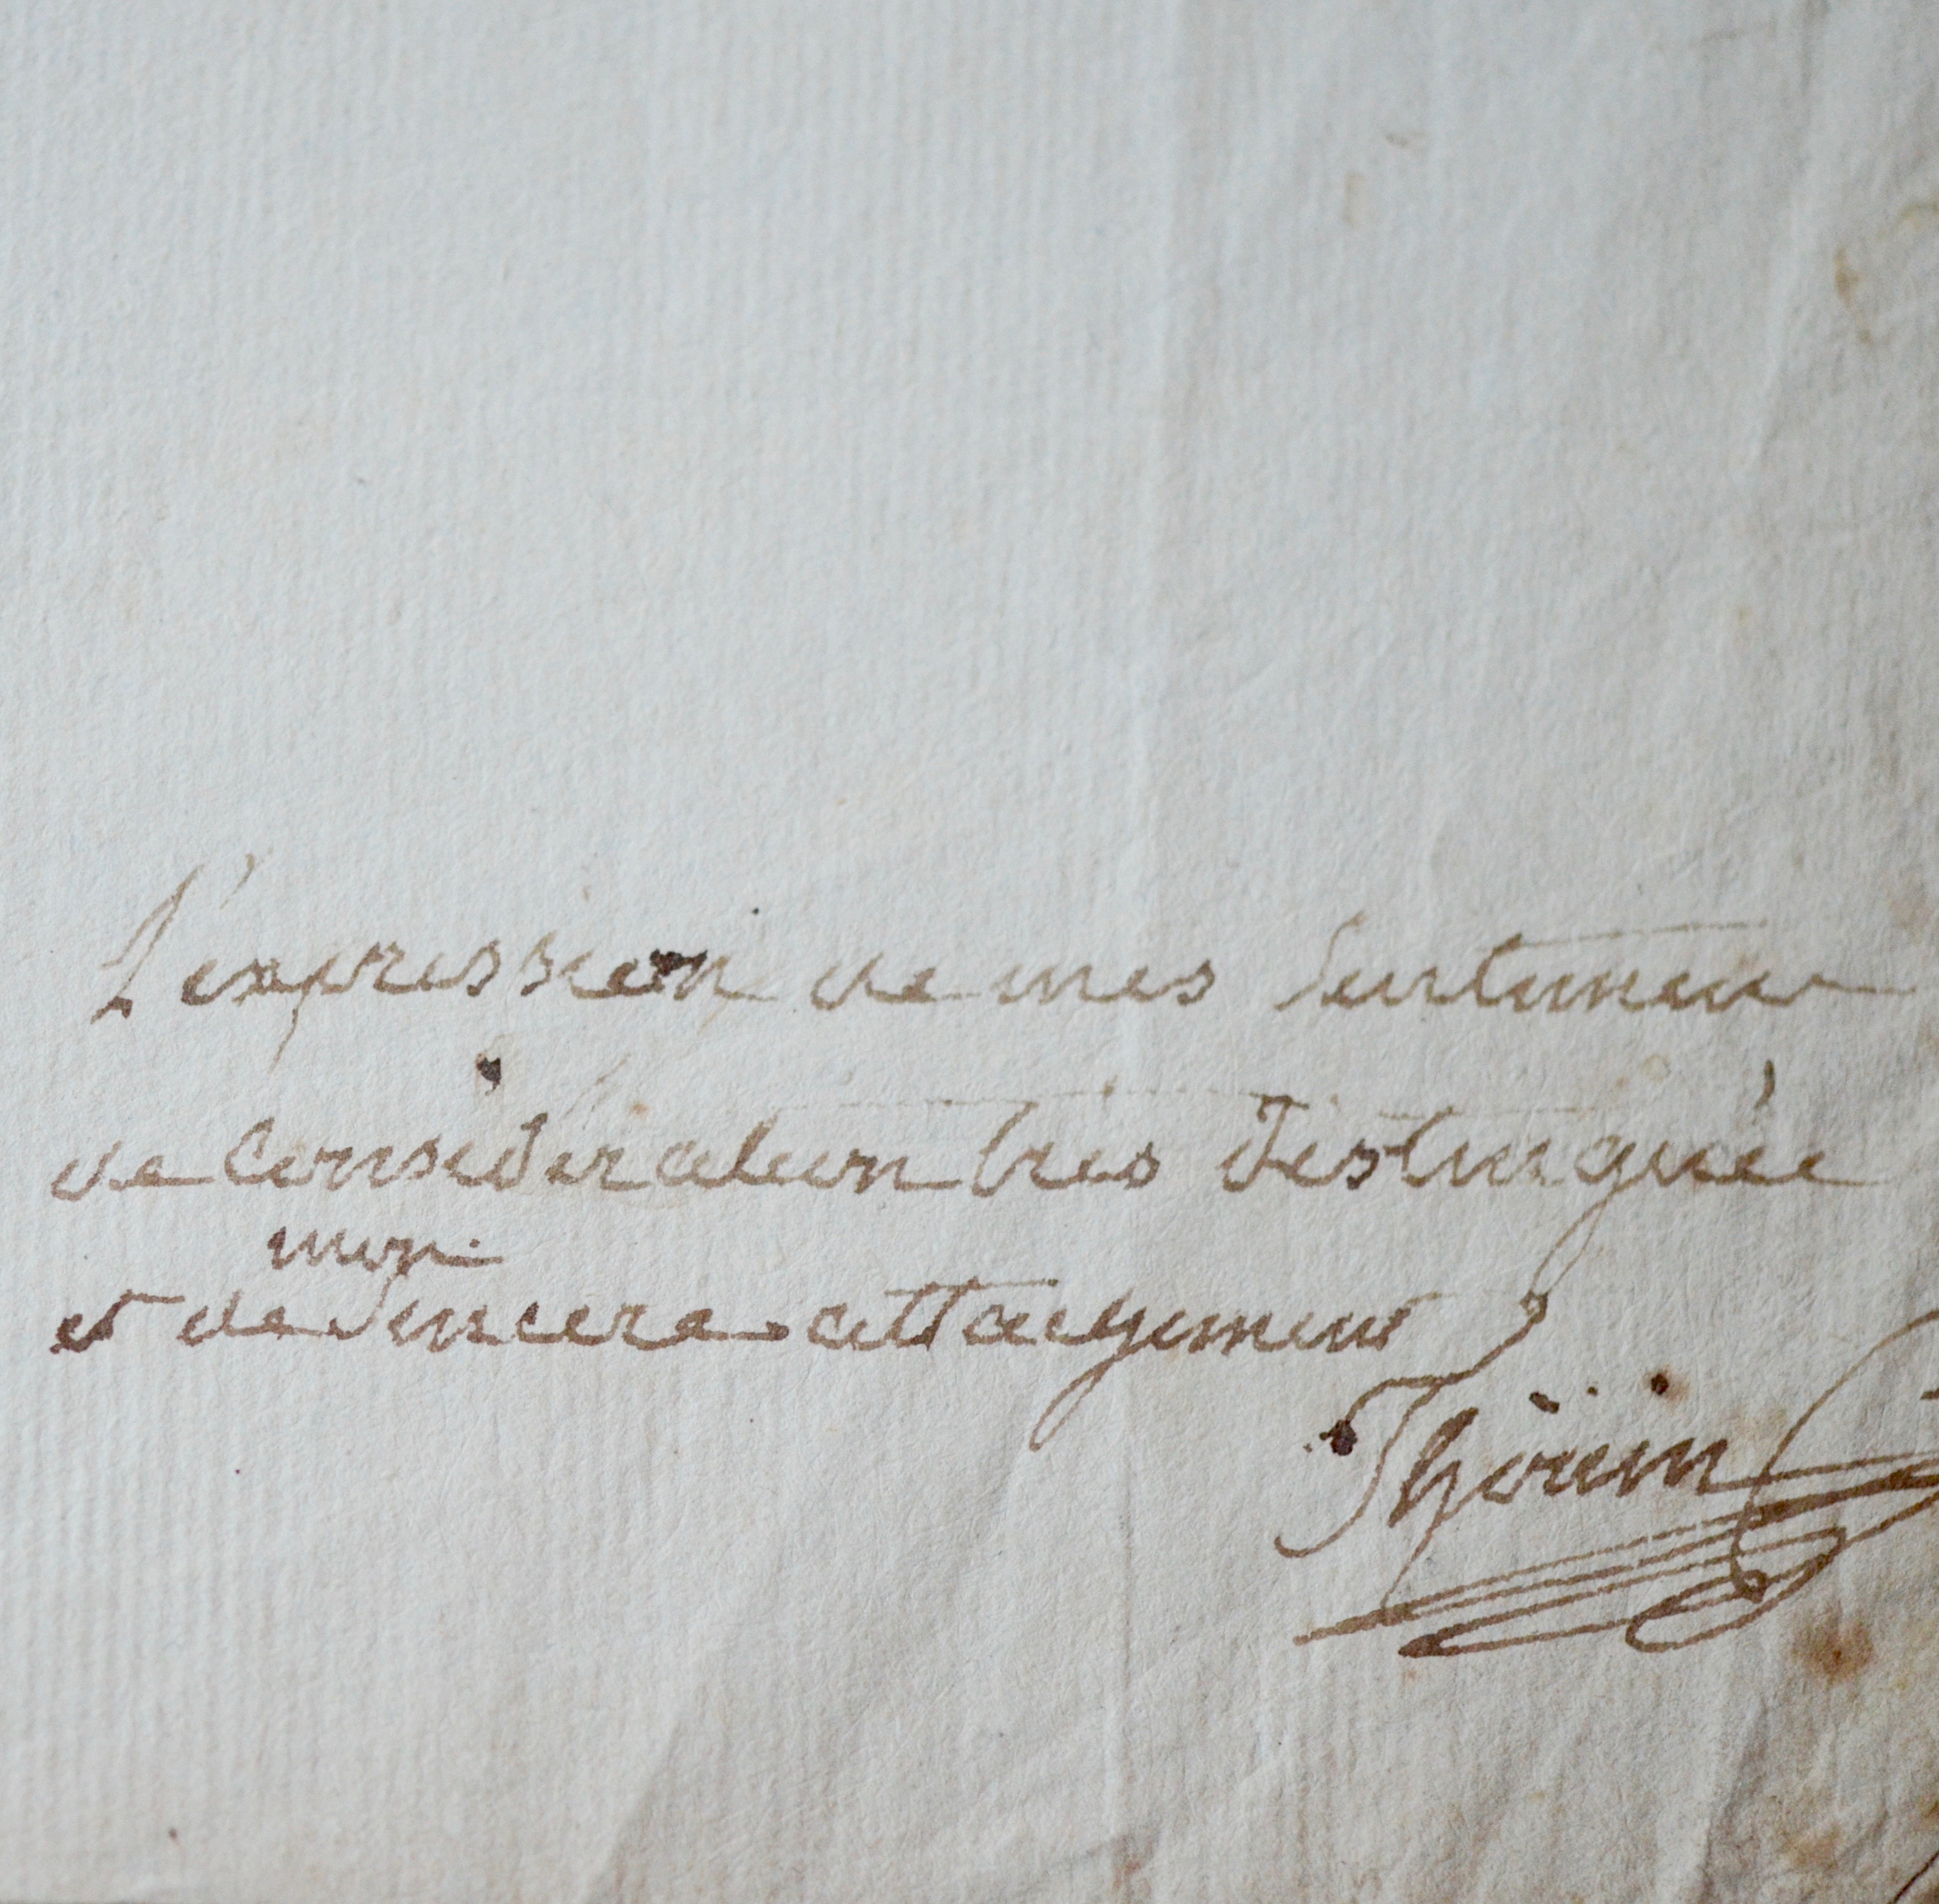 L'expression de mes Sentimens
de Consideration très distinguée
mon
et de Sincere attachement
Thöuin